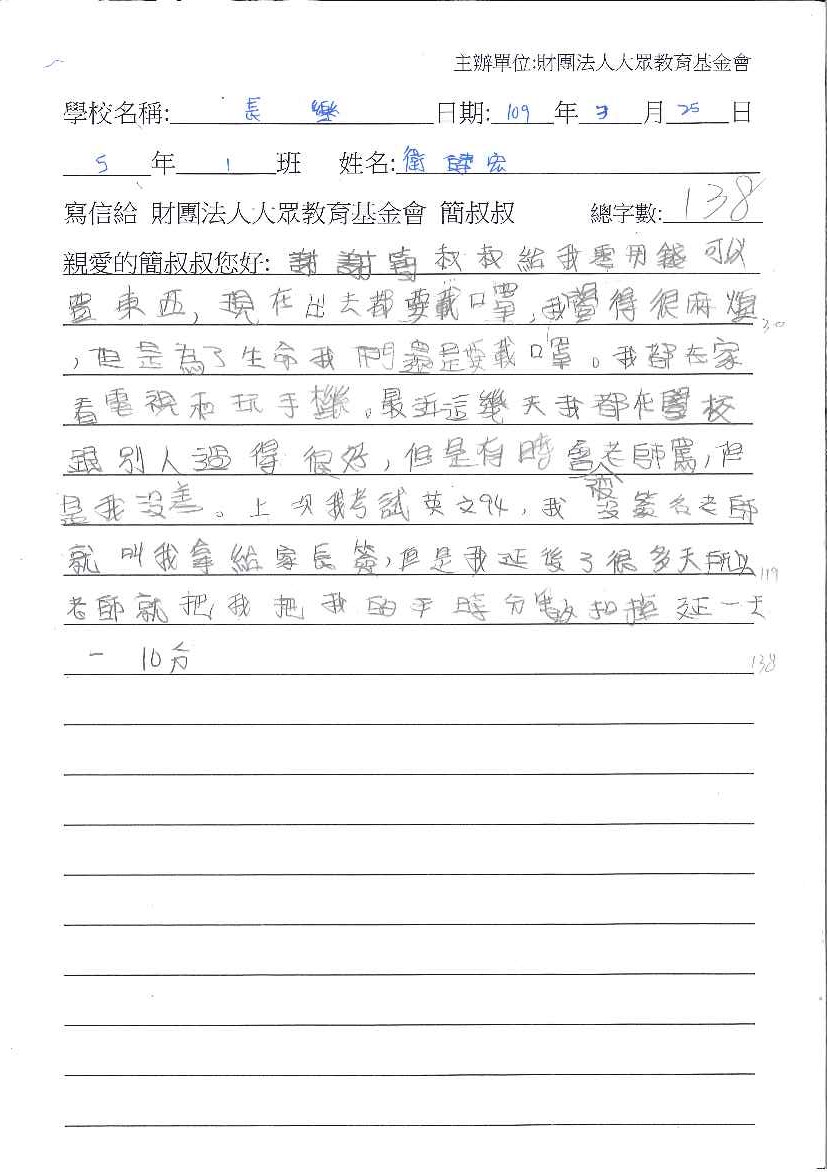 主辦單位:財團法人大眾教育基金會
學校名稱: 長樂 日期: 109 年 3 月 25 日
5 年 1 班 姓名: 衛 宏
寫信給 財團法人大眾教育基金會 簡叔叔 總字數: 138
親愛的簡叔叔您好: 謝謝 叔叔給我零用錢可以
買東西,現在出去都要載口罩,我覺得很麻煩 30
,但是為了生命我們還是要載口罩。我都在家
看電視和玩手機。最近這幾天我都在學校
跟別人過得很好,但是有時會被老師罵,但
是我沒差。上次我考試英文94,我沒簽名老師
就叫我拿給家長簽,但是我延後了很多天所以 119
老師就把我把我的平時分數扣掉延一天
一 10分 138